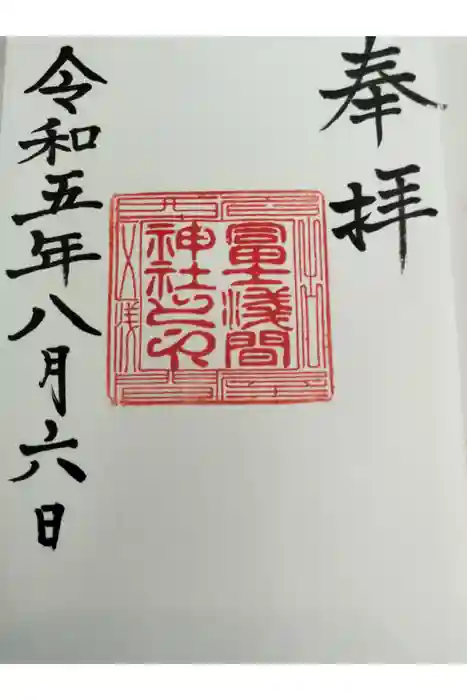 奉拝
冨士浅間
神社之印
令和五年八月六日